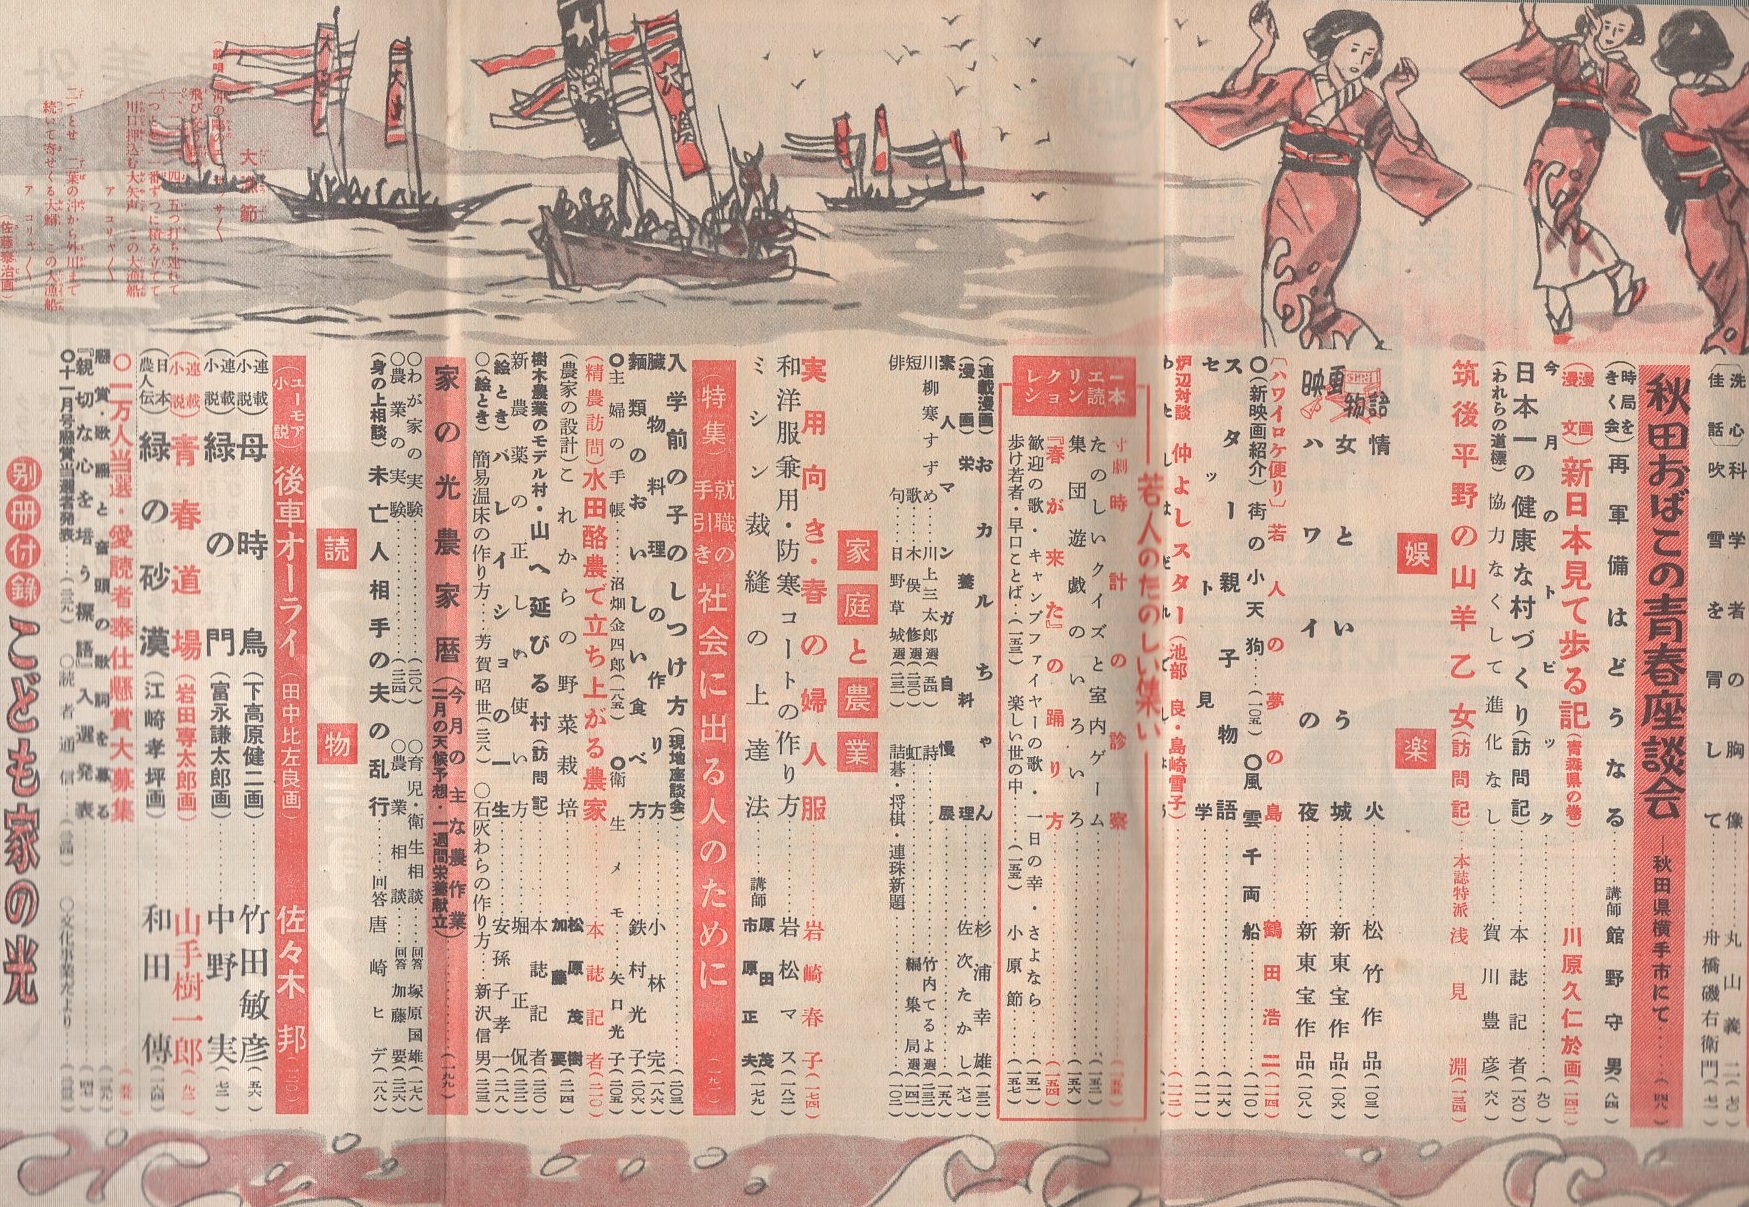 洗心科学者の胸像……丸山義二(七〇)
佳話 吹雪を冒して……舟橋磯右衛門(七二)
秋田おばこの青春座談会―秋田県横手市にて……(四八)
時局をきく会 再軍備はどうなる……講師 館野守男(八四)
漫画漫文 新日本見て歩る記(青森県の巻)……川原久仁於画(一四二)
今月のトピック……(九〇)
日本一の健康な村づくり(訪問記)……本誌記者(一六〇)
(われらの道標)協力なくして進化なし……賀川豊彦(六八)
筑後平野の山羊乙女(訪問記)……本誌特派 浅見淵(一三四)
娯楽
映画物語
情火……松竹作品(一〇三)
女という城……新東宝作品(一〇六)
ハワイの夜……新東宝作品(一〇八)
〔ハワイロケ便り〕若人の夢の島……鶴田浩二(一一四)
〇(新映画紹介)街の小天狗……(一〇五) 〇風雲千両船……(一一〇)
スター親子物語……(一一六)
セット見学……(一一一)
炉辺対談 仲よしスター(池部良・島崎雪子)……(一一二)
若人のたのしい集い
二本エ読リンクョレシ
寸劇 時計の診察……(一五六)
たのしいクイズと室内ゲーム……(一五二)
集団遊戯のいろいろ……(一五六)
『春が来た』の踊り方……(一五四)
歓迎の歌・キャンプファイヤーの歌・一日の幸・さよなら……(一五一)
歩け若者・早口ことば…(一五三) 楽しい世の中……(一五五) 小原節……(一五七)
(連載漫画)おカルちゃん……杉浦幸雄(一三二)
(漫画)栄養料理……佐次たかし(六七)
素人マンガ自慢展……(一五八)
川柳 寒すずめ……川上三太郎選 詩……竹内てるよ選
短歌……木俣修選(一三〇) 虹……編集局選(一四一)
俳句……日野草城選(一三一) 詰碁・将棋・連珠新題……(一〇二)
家庭と農業
実用向き・春の婦人服……岩崎春子(一七四)
和洋服兼用・防寒コートの作り方……岩松マス(一八二)
ミシン裁縫の上達法……講師 原田茂 市原正夫(一七七)
(特集)就職の手引き 社会に出る人のために……(一九二)
入学前の子のしつけ方(現地座談会)……(二〇三)
臓物料理の作り方……小林完(一八六)
麺類のおいしい食べ方……鉄村光子(二〇六)
〇主婦の手帳……沼畑金四郎(一八五) 〇衛生メモ……矢口光子(二〇五)
(精農訪問)水田酪農で立ち上がる農家……本誌記者(二一〇)
(農家の設計)これからの野菜栽培……松原茂樹 加藤要(二一四)
樹木農業のモデル村・山へ延びる村(訪問記)……本誌記者(二二〇)
新農薬の正しい使い方……堀正侃(二三三)
(絵とき)バレイショの一生……安孫子孝一(二一八)
〇(絵とき)簡易温床の作り方……芳賀昭世(二一八) 〇石灰わらの作り方……新沢信男(二二三)
家の光農家暦(今月の主な農作業 二月の天候予想・一週間栄養献立)……(一九九)
〇わが家の実験……(二〇八) 〇育児・衛生相談……回答 塚原国雄(一七八)
〇農業の実験……(二二四) 〇農業相談……回答 加藤要(二二六)
(身の上相談)未亡人相手の夫の乱行……回答 唐崎ヒデ(一八八)
読物
ユーモア小説 後車オーライ(田中比左良画)……佐々木邦(一二〇)
連載小説 母時鳥(下高原健二画)……竹田敏彦(五六)
連載小説 緑の門(富永謙太郎画)……中野実(七二)
連載小説 青春道場(岩田専太郎画)……山手樹一郎(九二)
日本農人伝 緑の砂漠(江崎孝坪画)……和田傳(一二四)
〇一万人当選・愛読者奉仕懸賞大募集
懸賞・歌謡と音頭の歌詞を募る
『親切な心を培う標語』入選発表
〇十一月号懸賞当選者発表 〇読者通信 〇文化事業だより
別冊付録 こども家の光
大漁節
二つとせ 二葉の沖から外川まで
続いて寄せくる大鰯 この大漁船
アコリャ〱
(佐藤泰治画)
大漁